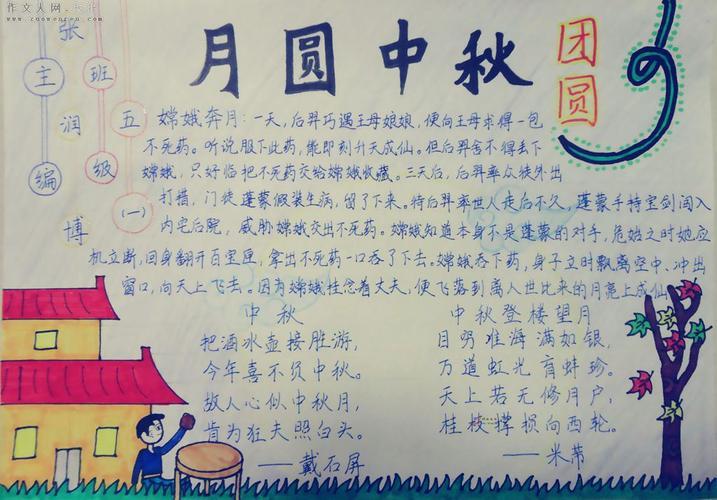 作文人网
月圆中秋
团圆
主编
张润博
班级
五(一)
嫦娥奔月:一天,后羿巧遇王母娘娘,便向王母求得一包
不死药。听说服下此药,能即刻升天成仙。但后羿舍不得丢下
嫦娥,只好临把不死药交给嫦娥收藏。三天后,后羿率众徒外出
打措,门徒蓬蒙假装生病,留了下来。待后羿率世人走后不久,蓬蒙手持宝剑闯入
内宅后院,威胁嫦娥交出不死药。嫦娥知道本身不是蓬蒙的对手,危殆之时她应
机立断,回身翻开百宝匣,拿出不死药一口吞了下去。嫦娥吞下药,身子立时飘离空中、冲出
窗口,向天上飞去。因为嫦娥挂念着丈夫,便飞落到离人世比来的月亮上成仙
中秋
把酒冰壶接胜游,
今年喜不负中秋。
故人心似中秋月,
肯为狂夫照白头。
——戴石屏
中秋登楼望月
目穷淮海满如银,
万道虹光育蚌珍。
天上若无修月户,
桂枝撑损向西轮。
——米芾